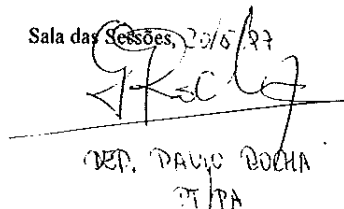 Sala das Sessões, 20/5/97
DEP. PAULO ROCHA
PT/PA